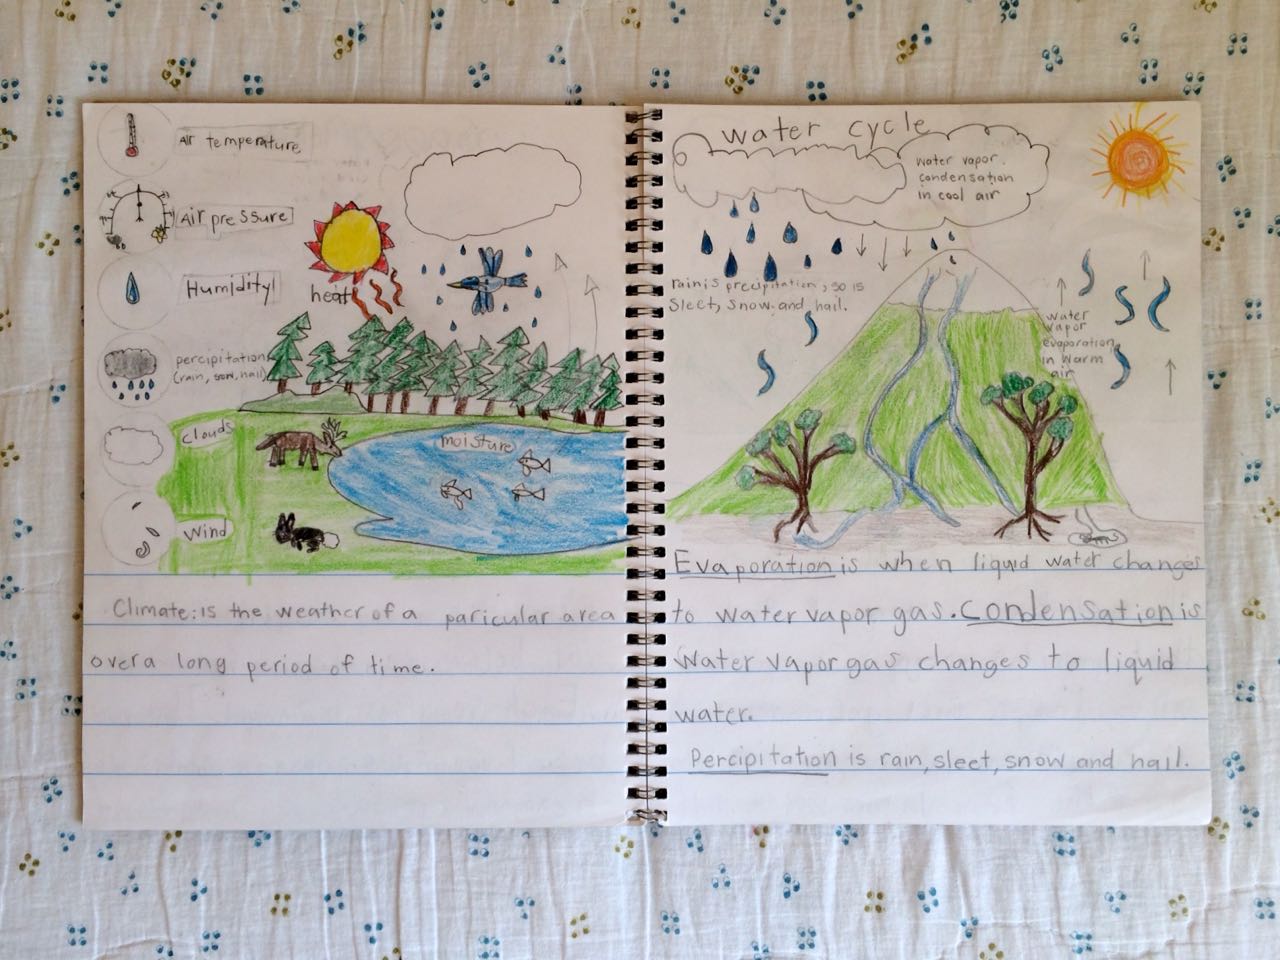 Air temperature
Air pressure
Humidity
percipitation
(rain, snow, hail)
clouds
Wind
heat
moisture
Climate: is the weather of a paricular area
over a long period of time.
water cycle
water vapor
condensation
in cool air
rain is precipitation, so is
sleet, snow and hail.
water
vapor
evaporation
in warm
air
Evaporation is when liquid water changes
to water vapor gas. Condensation is
Water vapor gas changes to liquid
water.
Percipitation is rain, sleet, snow and hail.